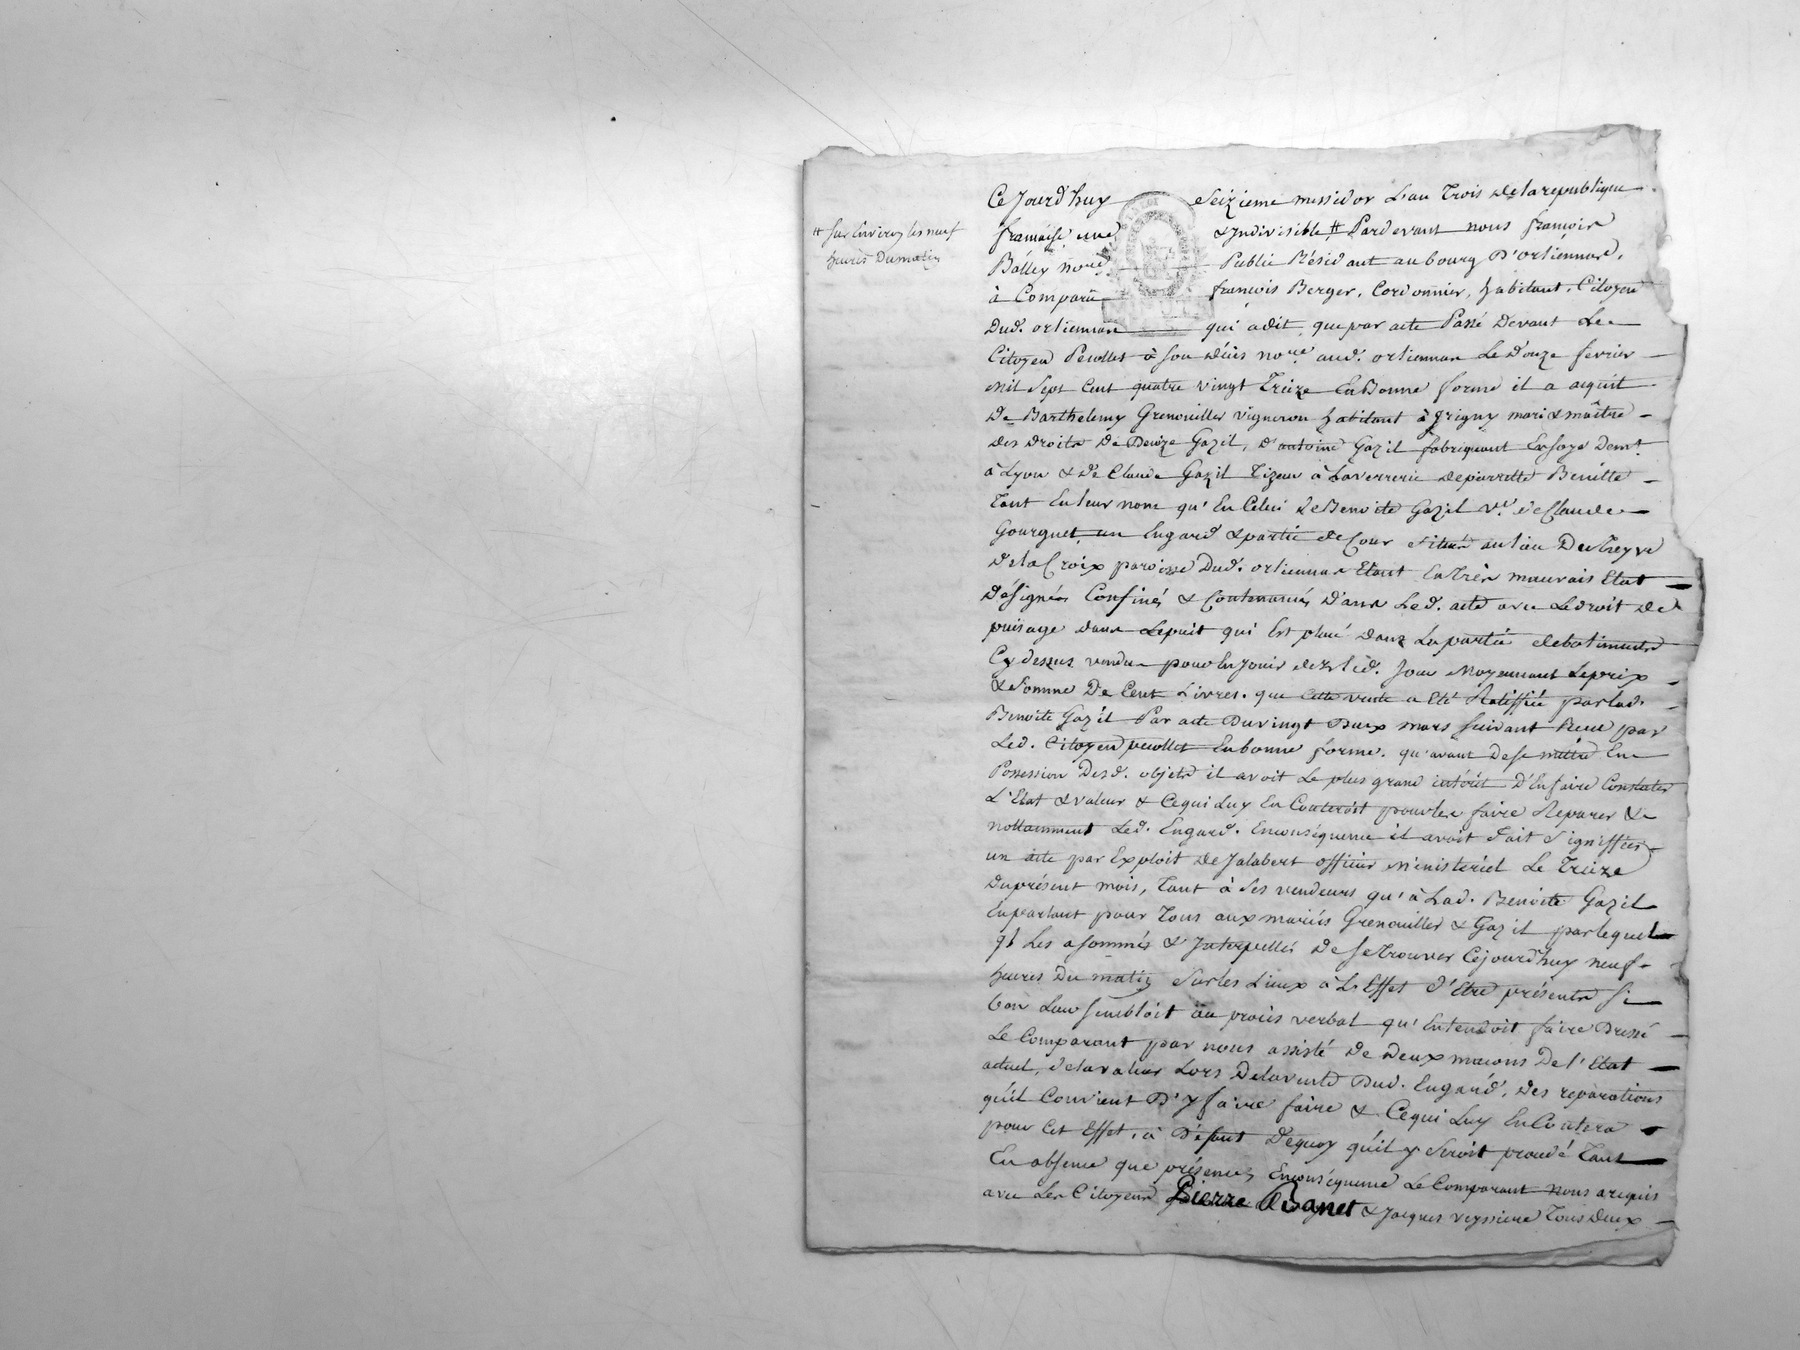 Ce Jourd'huy Seizieme messidor L'an Trois de la republique
# sur l'inviron les neuf
heures Du matin
francaise une & Indivisible # Pardevant nous françois
Balley no.re Public Résidant au bourg D'orliennas,
à Comparu françois Berger, Cordonnier, habitant, Citoyen
Dud. orliennas qui a dit, que par acte Passé Devant Le
Citoyen Peillet à son décès no.re aud. orliennas Le Douze fevrier
mil Sept Cent quatre vingt Treize En Bonne forme il a acquit
De Barthelemy Grenouiller vigneron habitant à Grigny mari & maître
des droits De Gazil, D'antoine Gazil fabriquant En soye Dem.t
à Lyon & De Claude Gazil Tizeur à La verrerie de pierrette Benitte
Tant En leur nom qu'En Celui de Benoite Gazil v.e de Claude
Gourguet, un Engard & partie de Cour situés au lieu Du Treyve
de la Croix paroisse Dud. orliennas Etant En très mauvais Etat
Désignés Confinés & Contenancés Dans Led. acte avec Le droit de
puisage dans Le puit qui Est placé Dans La partie de batiments
Cy dessus vendu pour En Jouir dez led. Jour Moyennant Le prix
& Somme De Cent Livres. que Cette vente a Eté Ratiffiée par lad.
Benoite Gazil Par acte Du vingt Deux mars suivant Recu par
Led. Citoyen peillet En bonne forme. qu'avant De se mettre En
Possession Desd. objets il avoit Le plus grand intérêt D'En faire Constater
L'Etat & valeur & Ce qui Luy En Couteroit pour les faire Reparer &
nottamment Led. Engard. En conséquence il avoit fait Signiffier
un acte par Exploit De Jalabert officier Ministeriel Le Treize
Du présent mois, Tant à Ses vendeurs qu'à Lad. Benoite Gazil
En parlant pour Tous aux mariés Grenouiller & Gazil par lequel
Les a sommés & Interpellés De se trouver Cejourd'huy neuf
heures Du matin Sur les Lieux à L'Effet D'Etre présents Si
bon Leur sembloit au procès verbal qu'Entendoit faire Dressé
Le Comparant par nous assisté De Deux maçons De l'Etat
actuel, de la valeur Lors De la vente Dud. Engard, Des reparations
qu'il Convient D'y faire faire & Ce qui Luy En Coutera
pour Cet Effet, à Défaut Dequoy qu'il y Seroit procédé Tant
En absence que présence, En conséquence Le Comparant Nous a requis
avec Les Citoyens Pierre & Jacques veyssiere Tous deux